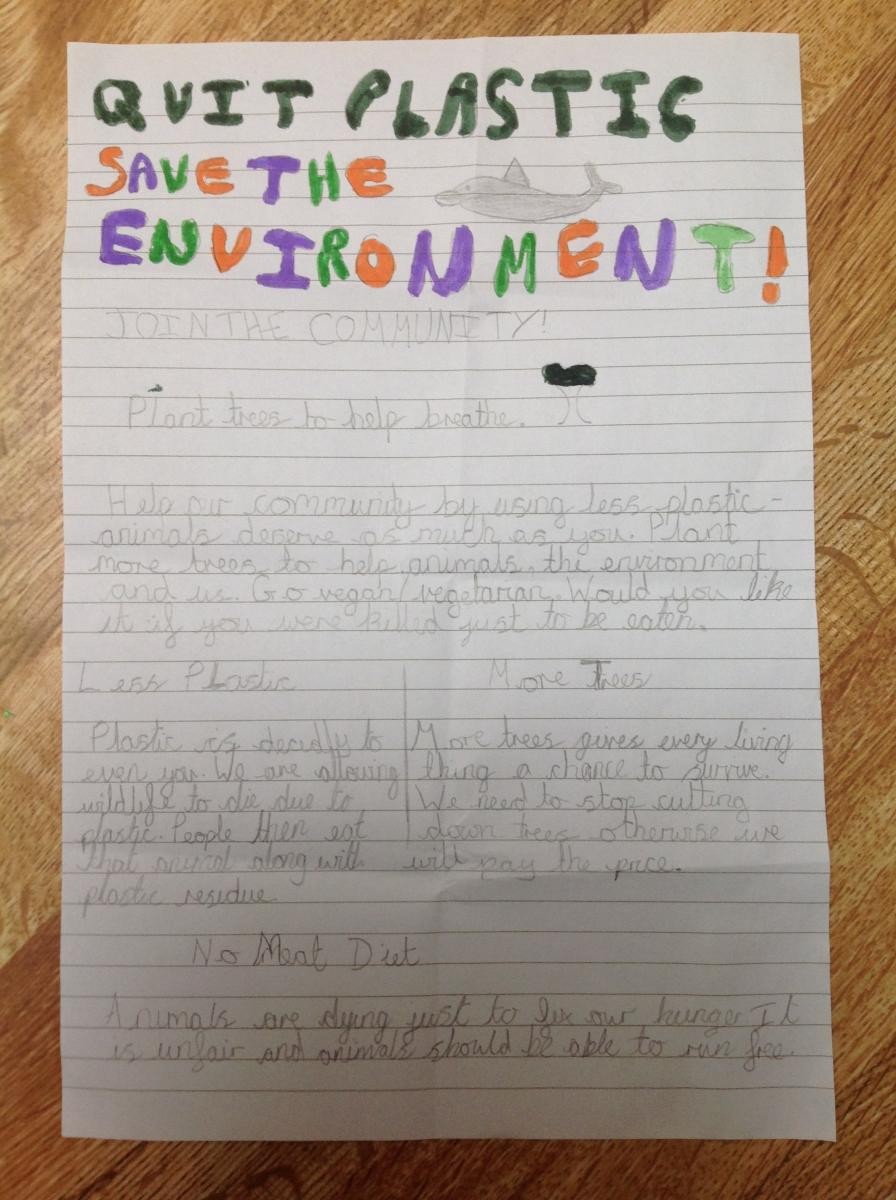 QUIT PLASTIC
SAVE THE
ENVIRONMENT!
JOIN THE COMMUNITY!
Plant trees to help breathe.
Help our community by using less plastic -
animals deserve as much as you. Plant
more trees to help animals, the environment
and us. Go vegan/vegetarian. Would you like
it if you were killed just to be eaten.
Less Plastic
Plastic is decidly to
even you. We are allowing
wildlife to die due to
plastic. People then eat
that animal along with
plastic residue.
More Trees
More trees gives every living
thing a chance to survive.
We need to stop cutting
down trees otherwise we
will pay the price.
No Meat Diet
Animals are dying just to fix our hunger. It
is unfair and animals should be able to run free.